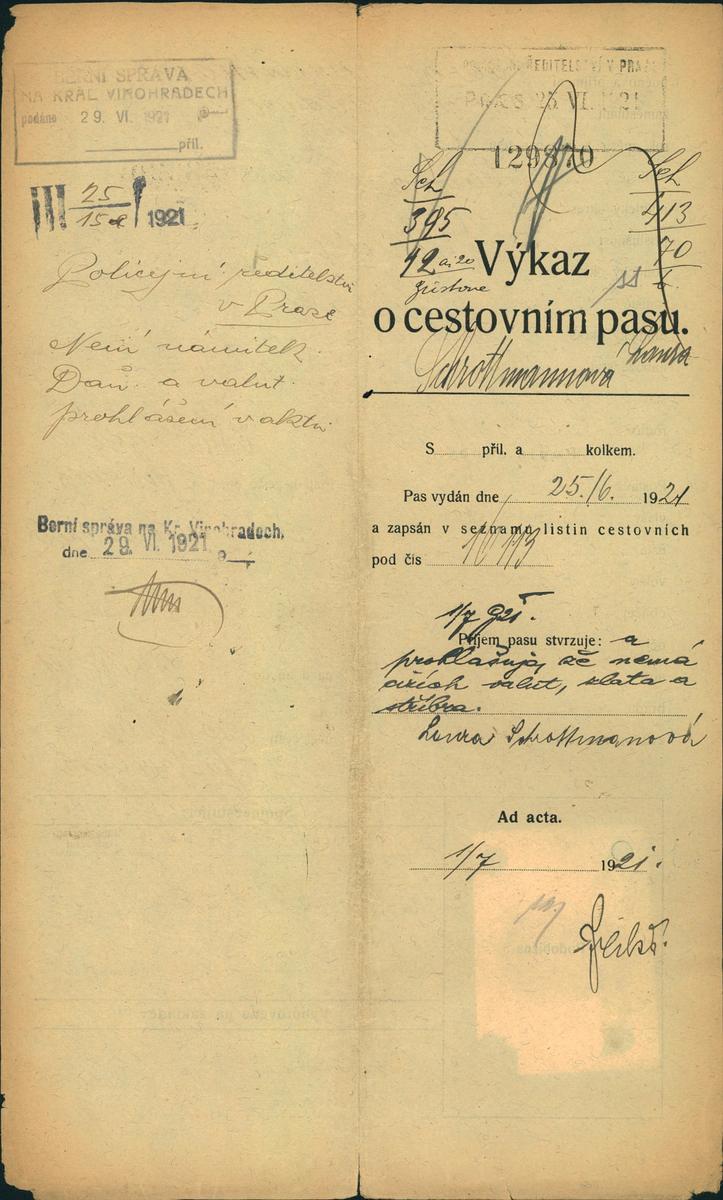 BERNÍ SPRÁVA
NA KRÁL VINOHRADECH
podáno 29. VI. 1921
příl.
III 25/15 1921
Policejní ředitelství
v Praze
Není námitek.
Daň. a valut.
prohlášení v aktu
Berní správa na Kr. Vinohradech,
dne 29. VI. 1921
ŘEDITELSTVÍ V PRAZE
25 VI. 1921
129870
Sch
395
12 ai 20
Sch
413
70
6
Výkaz
o cestovním pasu.
Schrottmannová Laura
S příl. a kolkem.
Pas vydán dne 25./6. 1921
a zapsán v seznamu listin cestovních
pod čís
1/7 921.
Příjem pasu stvrzuje: a
prohlašuje, že nemá
cizích valut, zlata a
stříbra.
Laura Schrottmanová
Ad acta.
1/7 1921.